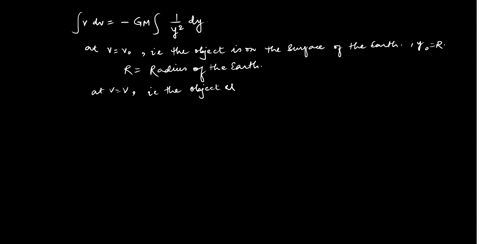 ∫v dv = - GM ∫ 1/y² dy.
at v = v₀ , i.e the object is on the Surface of the Earth. , y₀ = R.
R = Radius of the Earth.
at v = v , ie the object